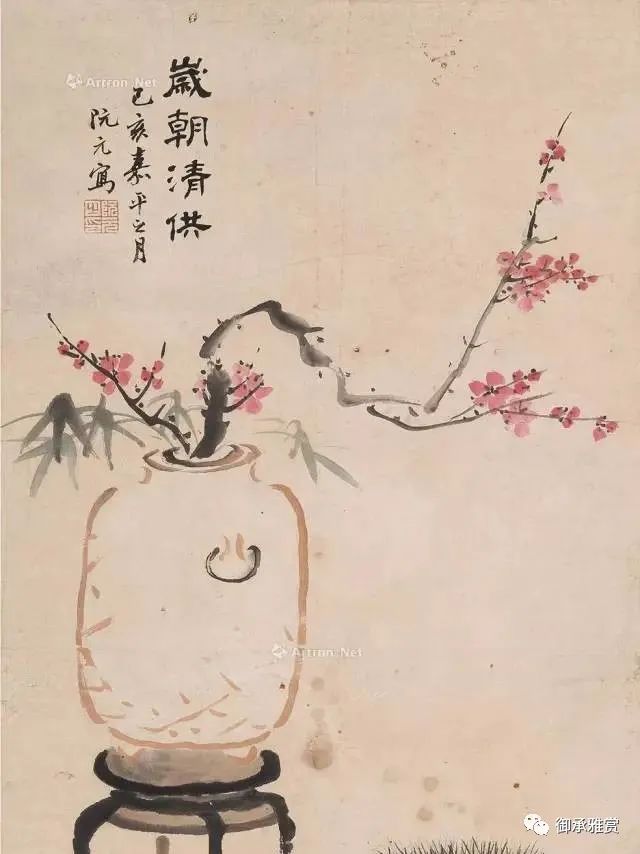 歲朝清供
己亥嘉平之月
阮元寫
Artron.Net
Artron.Net
御承雅赏